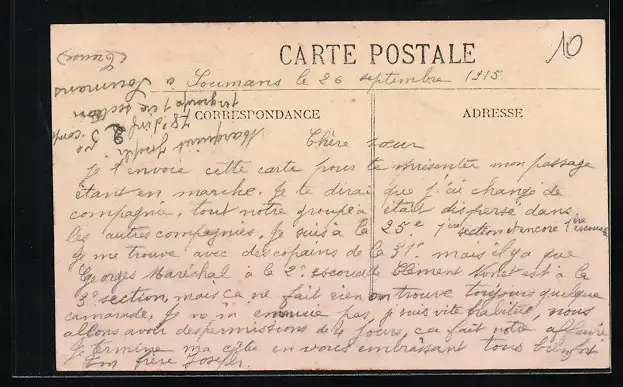 10
CARTE POSTALE
Soumans le 26 septembre 1915.
CORRESPONDANCE
ADRESSE
(Creuse)
à Soumans
1re section
78e d'inf
Joseph
Chère sœur
Je t'envoie cette carte pour te présenter mon passage
étant en marche. Je te dirai que j'ai changé de
compagnie, tout notre groupe a était dispersé dans
les autres compagnies. Je suis à la 25e 1ère section et encore 1ère escouade
Je me trouve avec des copains de la 31e mais il y a que
Georges Maréchal à la 2e escouade Clément est à la
2e section, mais ça ne fait rien on trouve toujours quelque
camarade, Je m'ennuie pas, j'suis vite habitué, nous
allons avoir des permissions de 4 jours, ça fait notre affaire
Je termine ma carte en vous embrassant tous bien fort
Ton frère Joseph.